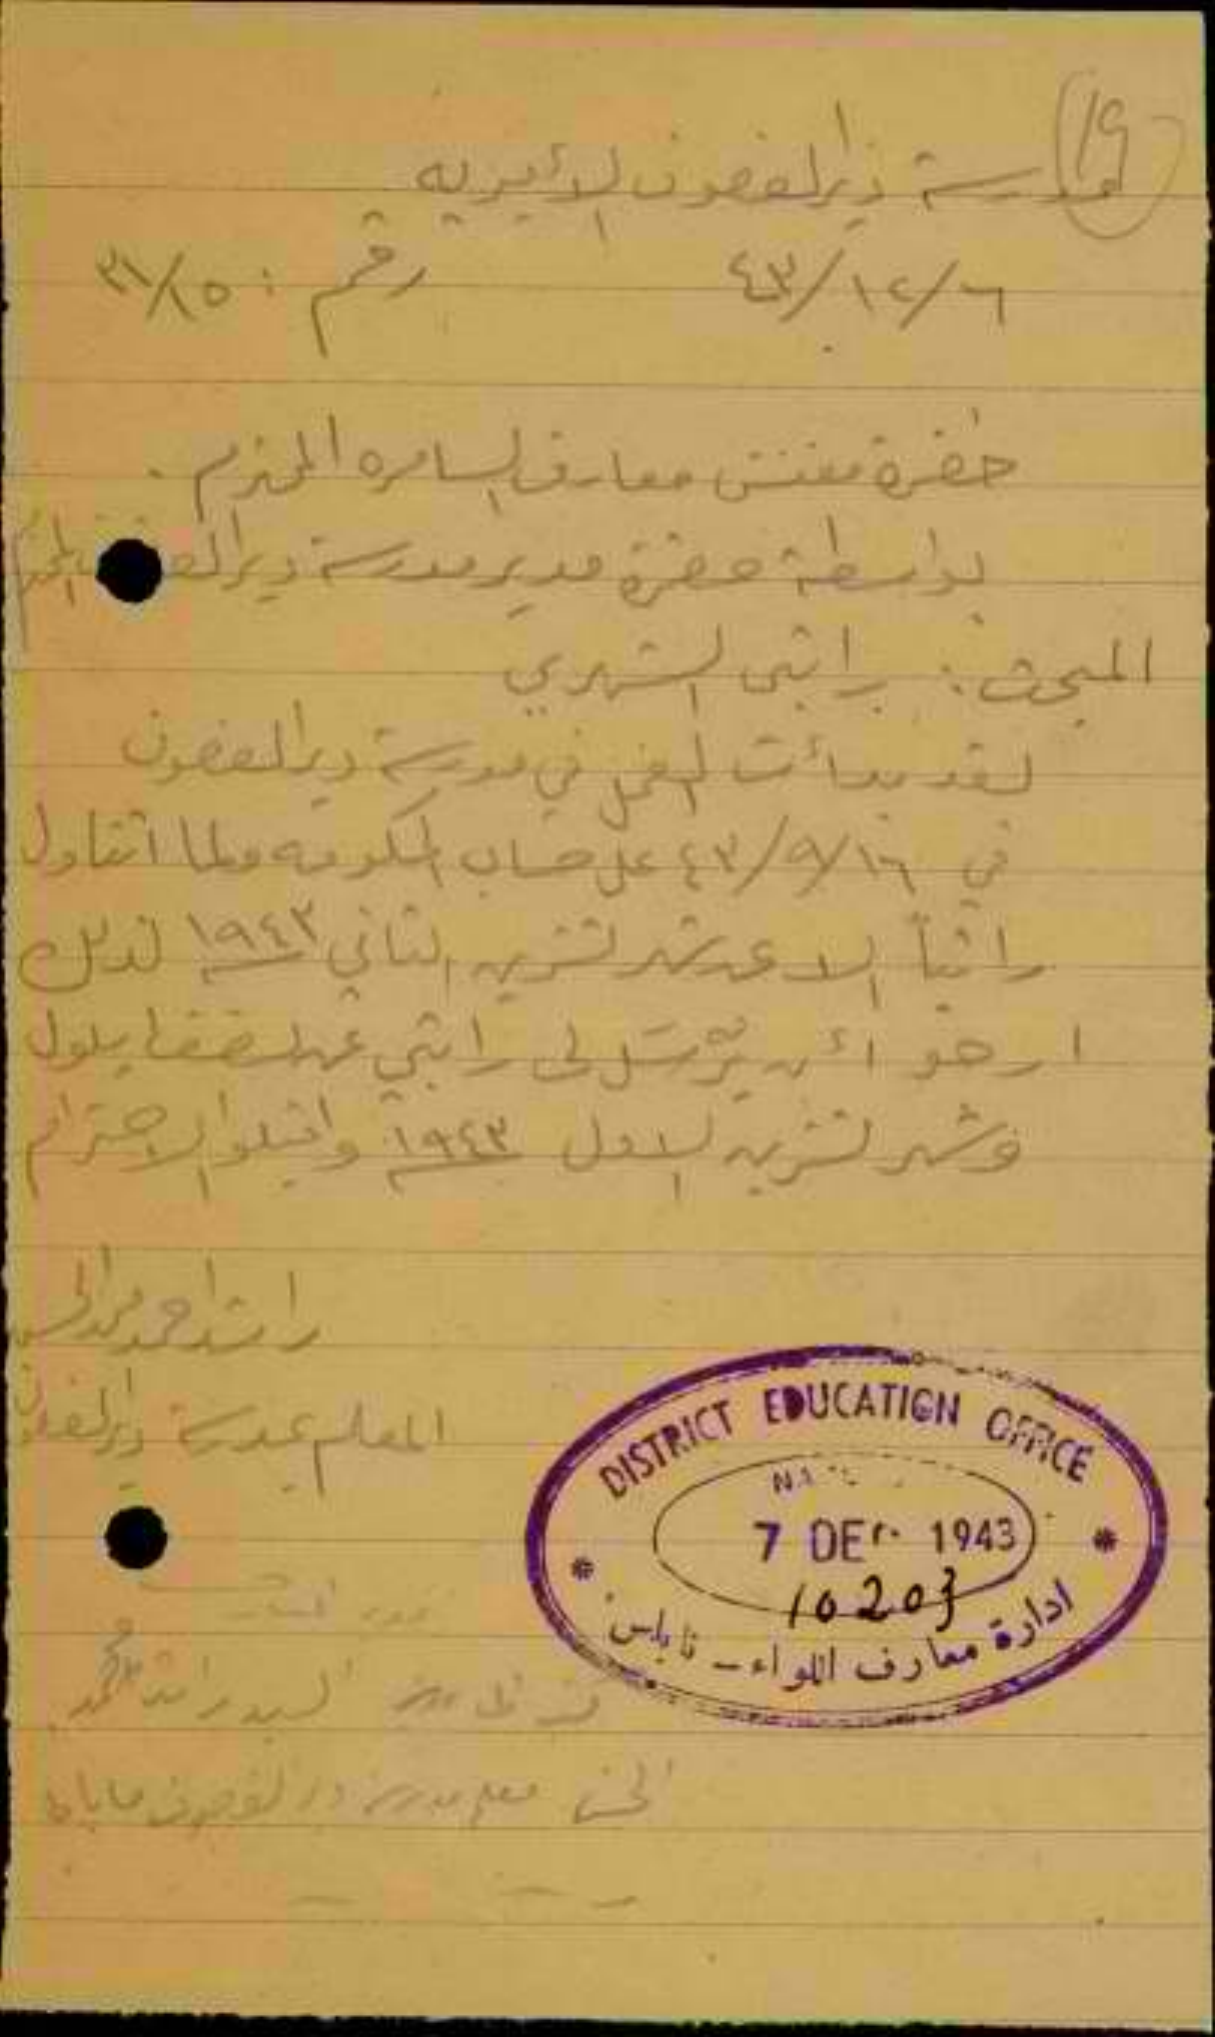 ١٩
مدرسة ديرالغصون الأميرية
٤٣/١٢/٦ رقم: ٣١/١٥
حضرة مفتش معارف السامره المحترم.
بواسطة حضرة مدير مدرسة ديرالغصون المحترم
المبحث: راتبي الشهري
لقد بدأت العمل في مدرسة ديرالغصون
في ٤٣/٩/١٦ على حساب الحكومه ولما اتناول
راتباً الا عن شهر تشرين الثاني ١٩٤٣ لذلك
ارجو أن يُرسَل لي راتبي عن ايلول
وشهر تشرين الاول ١٩٤٣ واقبلوا الاحترام
راشد احمد محمد الحسن
المعلم بمدرسة ديرالغصون
DISTRICT EDUCATION OFFICE
7 DEC 1943
10203
ادارة معارف اللواء - نابلس
السيد راشد محمد
الحسن معلم مدرسة دير الغصون